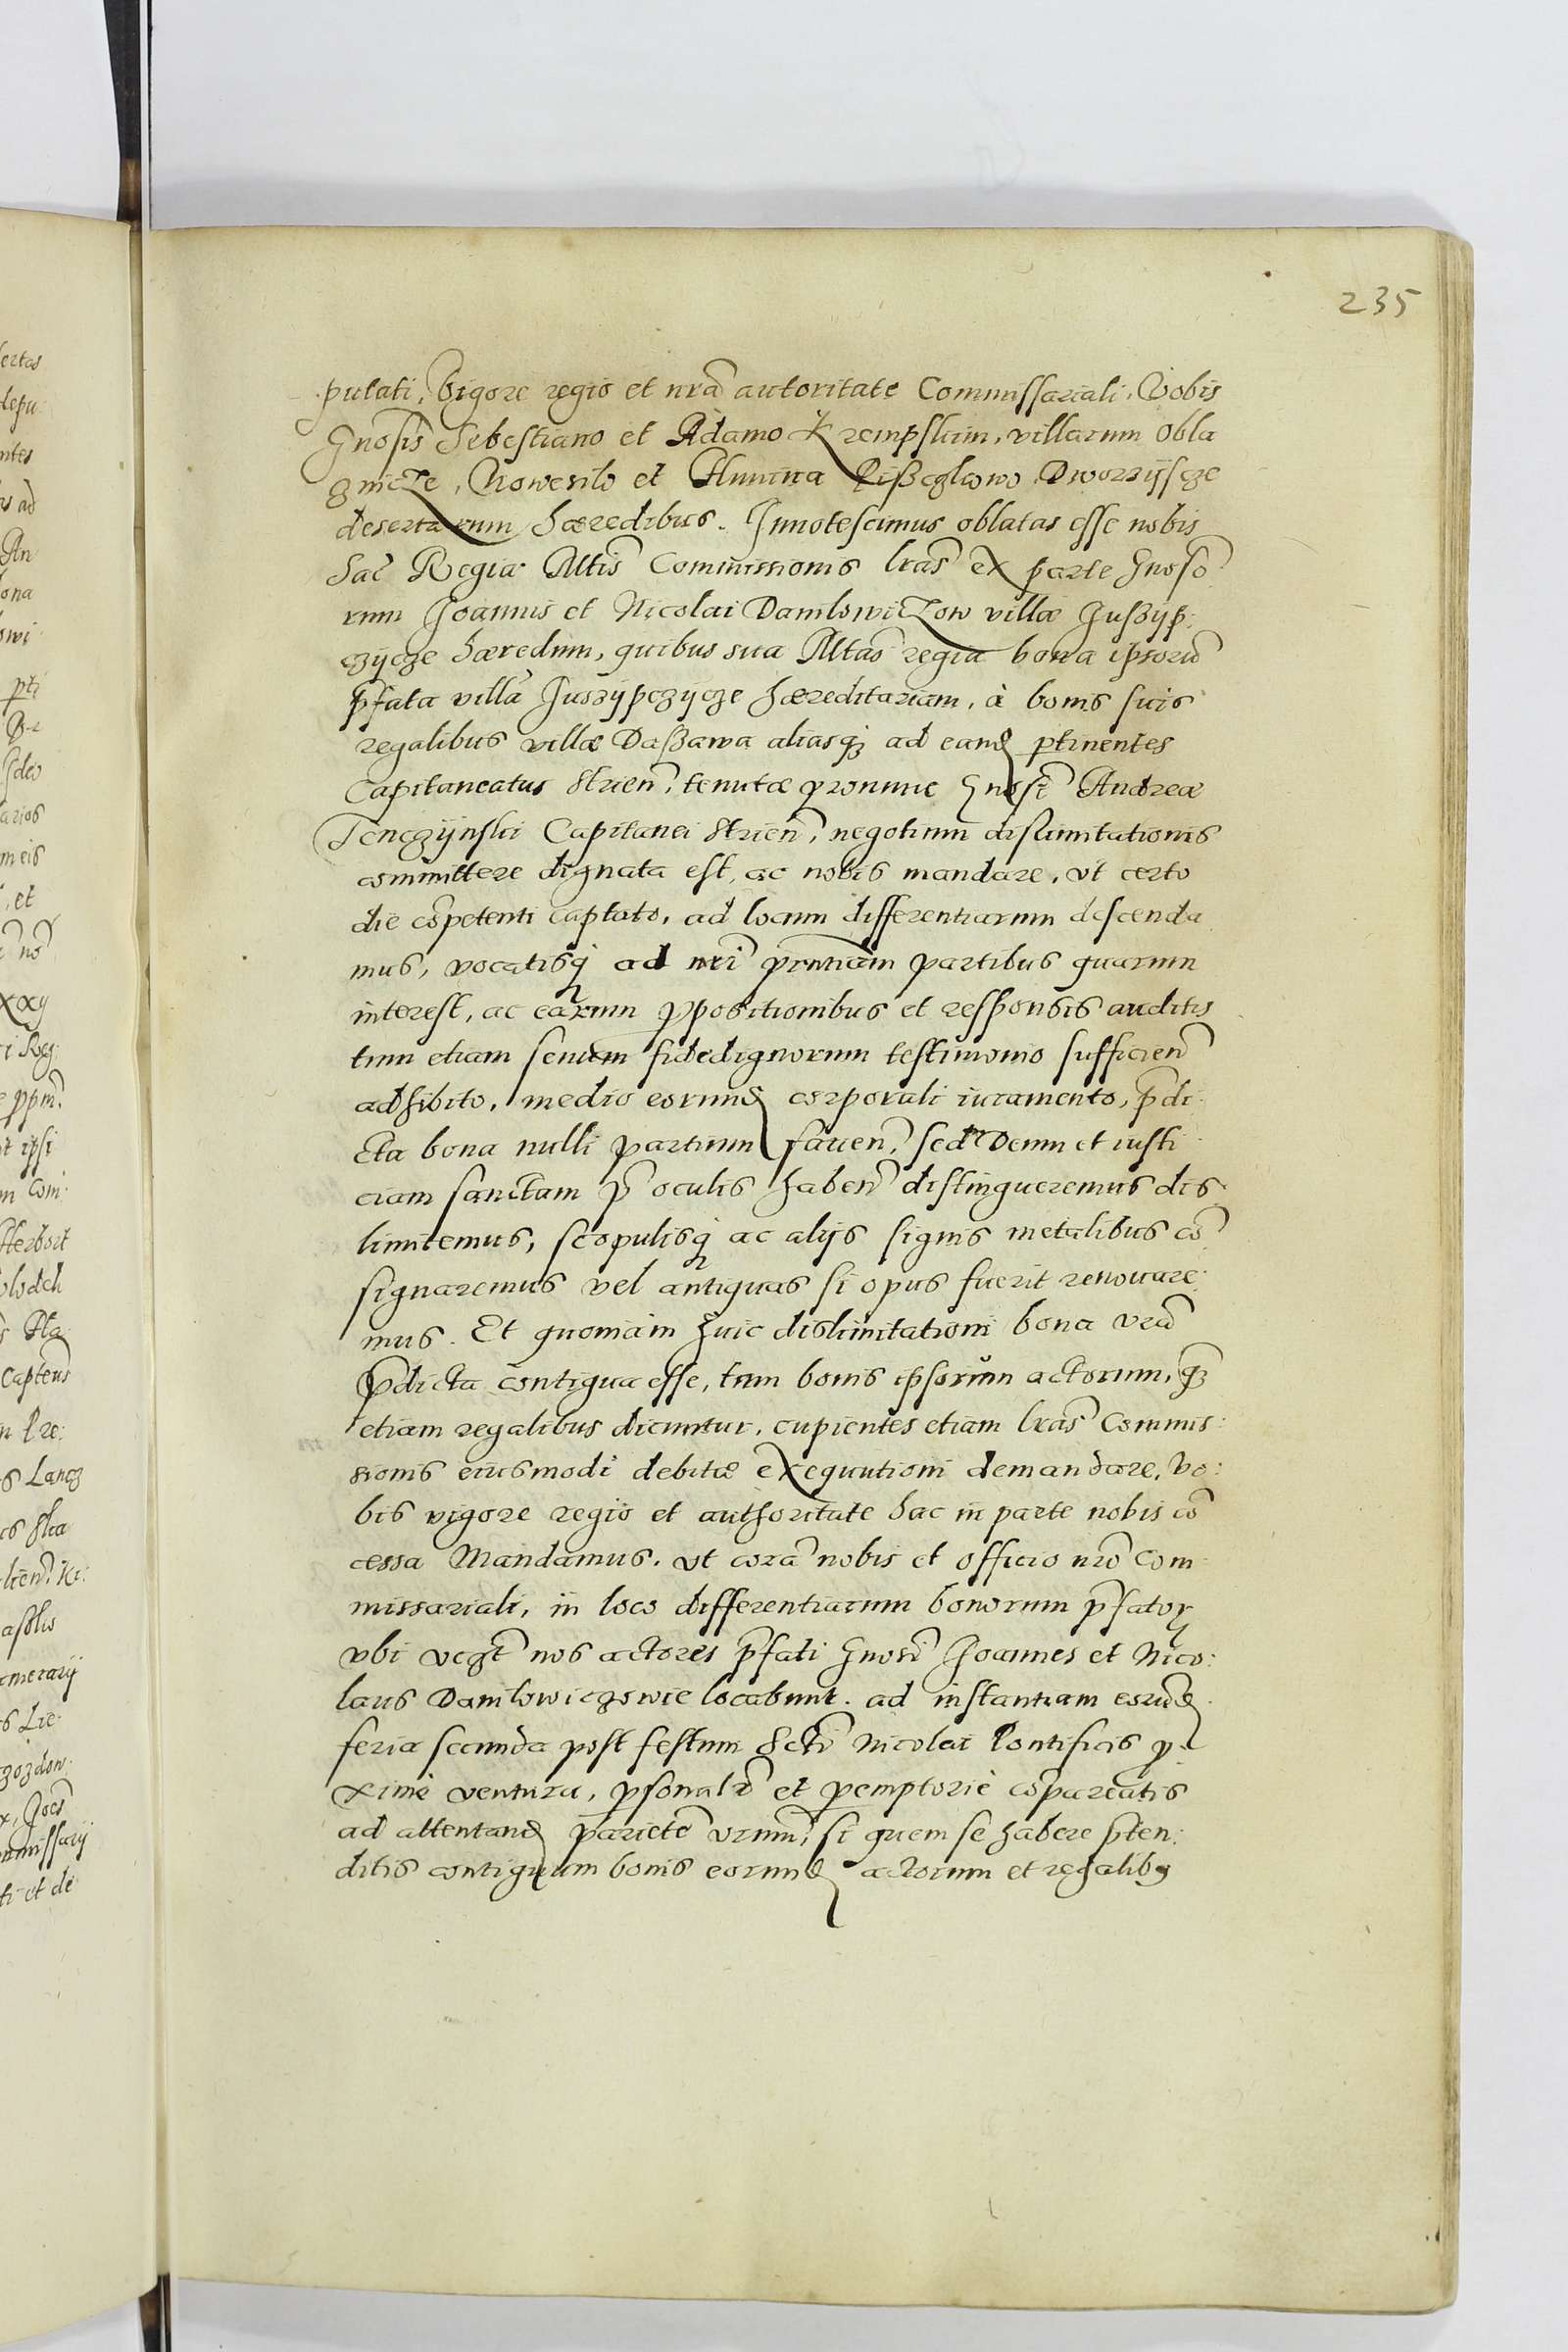 235
putati, Vigore regio et nrã autoritate Commissariali. Vobis
Gnosis Sebestiano et Adamo Krempskim, villarum Obla
znicze, Nowesilo et Hunina Lißeglowo Dworzÿscze
desertarum hæredibus. Innotescimus oblatas esse nobis
Sac̃ Regiæ Mtis̃ Commissionis lras̃ ex parte Gnoso
rum Joannis et Nicolai Danilowiczow villæ Juszÿp:
czÿcze hæredum, quibus sua Mtas̃ regia bona ipsorũ
p̃fata villã Juszÿpczÿcze hæreditariam, à bonis suis
regalibus villæ Daßawa aliasq₃ ad eand ptinentes
Capitaneatus Strien̄, tenutæ pronunc Gnosi Andreæ
Tenczÿnski Capitanei Strien̄, negotium dislimitationis
committere dignata est, ac nobis mandare, vt certo
die cõpetenti captato, ad locum differentiarum descenda
mus, vocatisq ad nri p̃ntiam partibus quarum
interest, ac earum ppositionibus et responsis auditis
tum etiam senum fidedignorum testimonio sufficien̄
adhibito, medio eorund corporali iuramento, p̃di
cta bona nulli partium fauen̄, sed Deum et iusti
ciam sanctam p̃ oculis haben̄ distingueremus dis
limitemus, scopulisq ac alijs signis metalibus cõ
signaremus vel antiquas si opus fuerit renouare:
mus. Et quoniam huic dislimitationi bona vrã
p̃dicta contigua esse, tum bonis ipsorum actorum, q₃
etiam regalibus dicuntur, cupientes etiam lras̃ Commis:
sionis eiusmodi debitæ exequutioni demandare, Vo:
bis vigore regio et authoritate hac in parte nobis cõ
cessa Mandamus. vt corã nobis et officio nrõ Com
missariali, in loco differentiarum bonorum p̃fator
vbi vczt nos actores p̃fati Gnosi Joannes et Nico:
laus Danilowiczowie locabunt. ad instantiam eorũd
feria secunda post festum Scti Nicolai Pontificis p
ximè ventura, psonalr̃ et pemptoriè cõpareatis
ad attentand parietẽ vrum, si quem se habere p̃ten:
ditis contiguum bonis eorund actorum et regalibꝫ